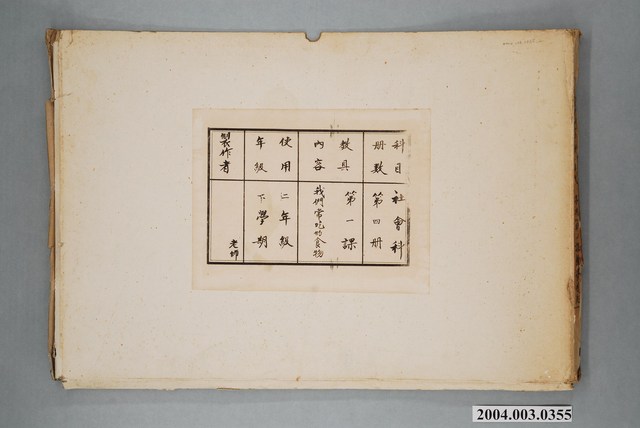 科目 社會科
册數 第四册
教具 第一課
內容 我們常吃的食物
使用 二年級
年級 下學期
製作者 老師
2004.003.0355